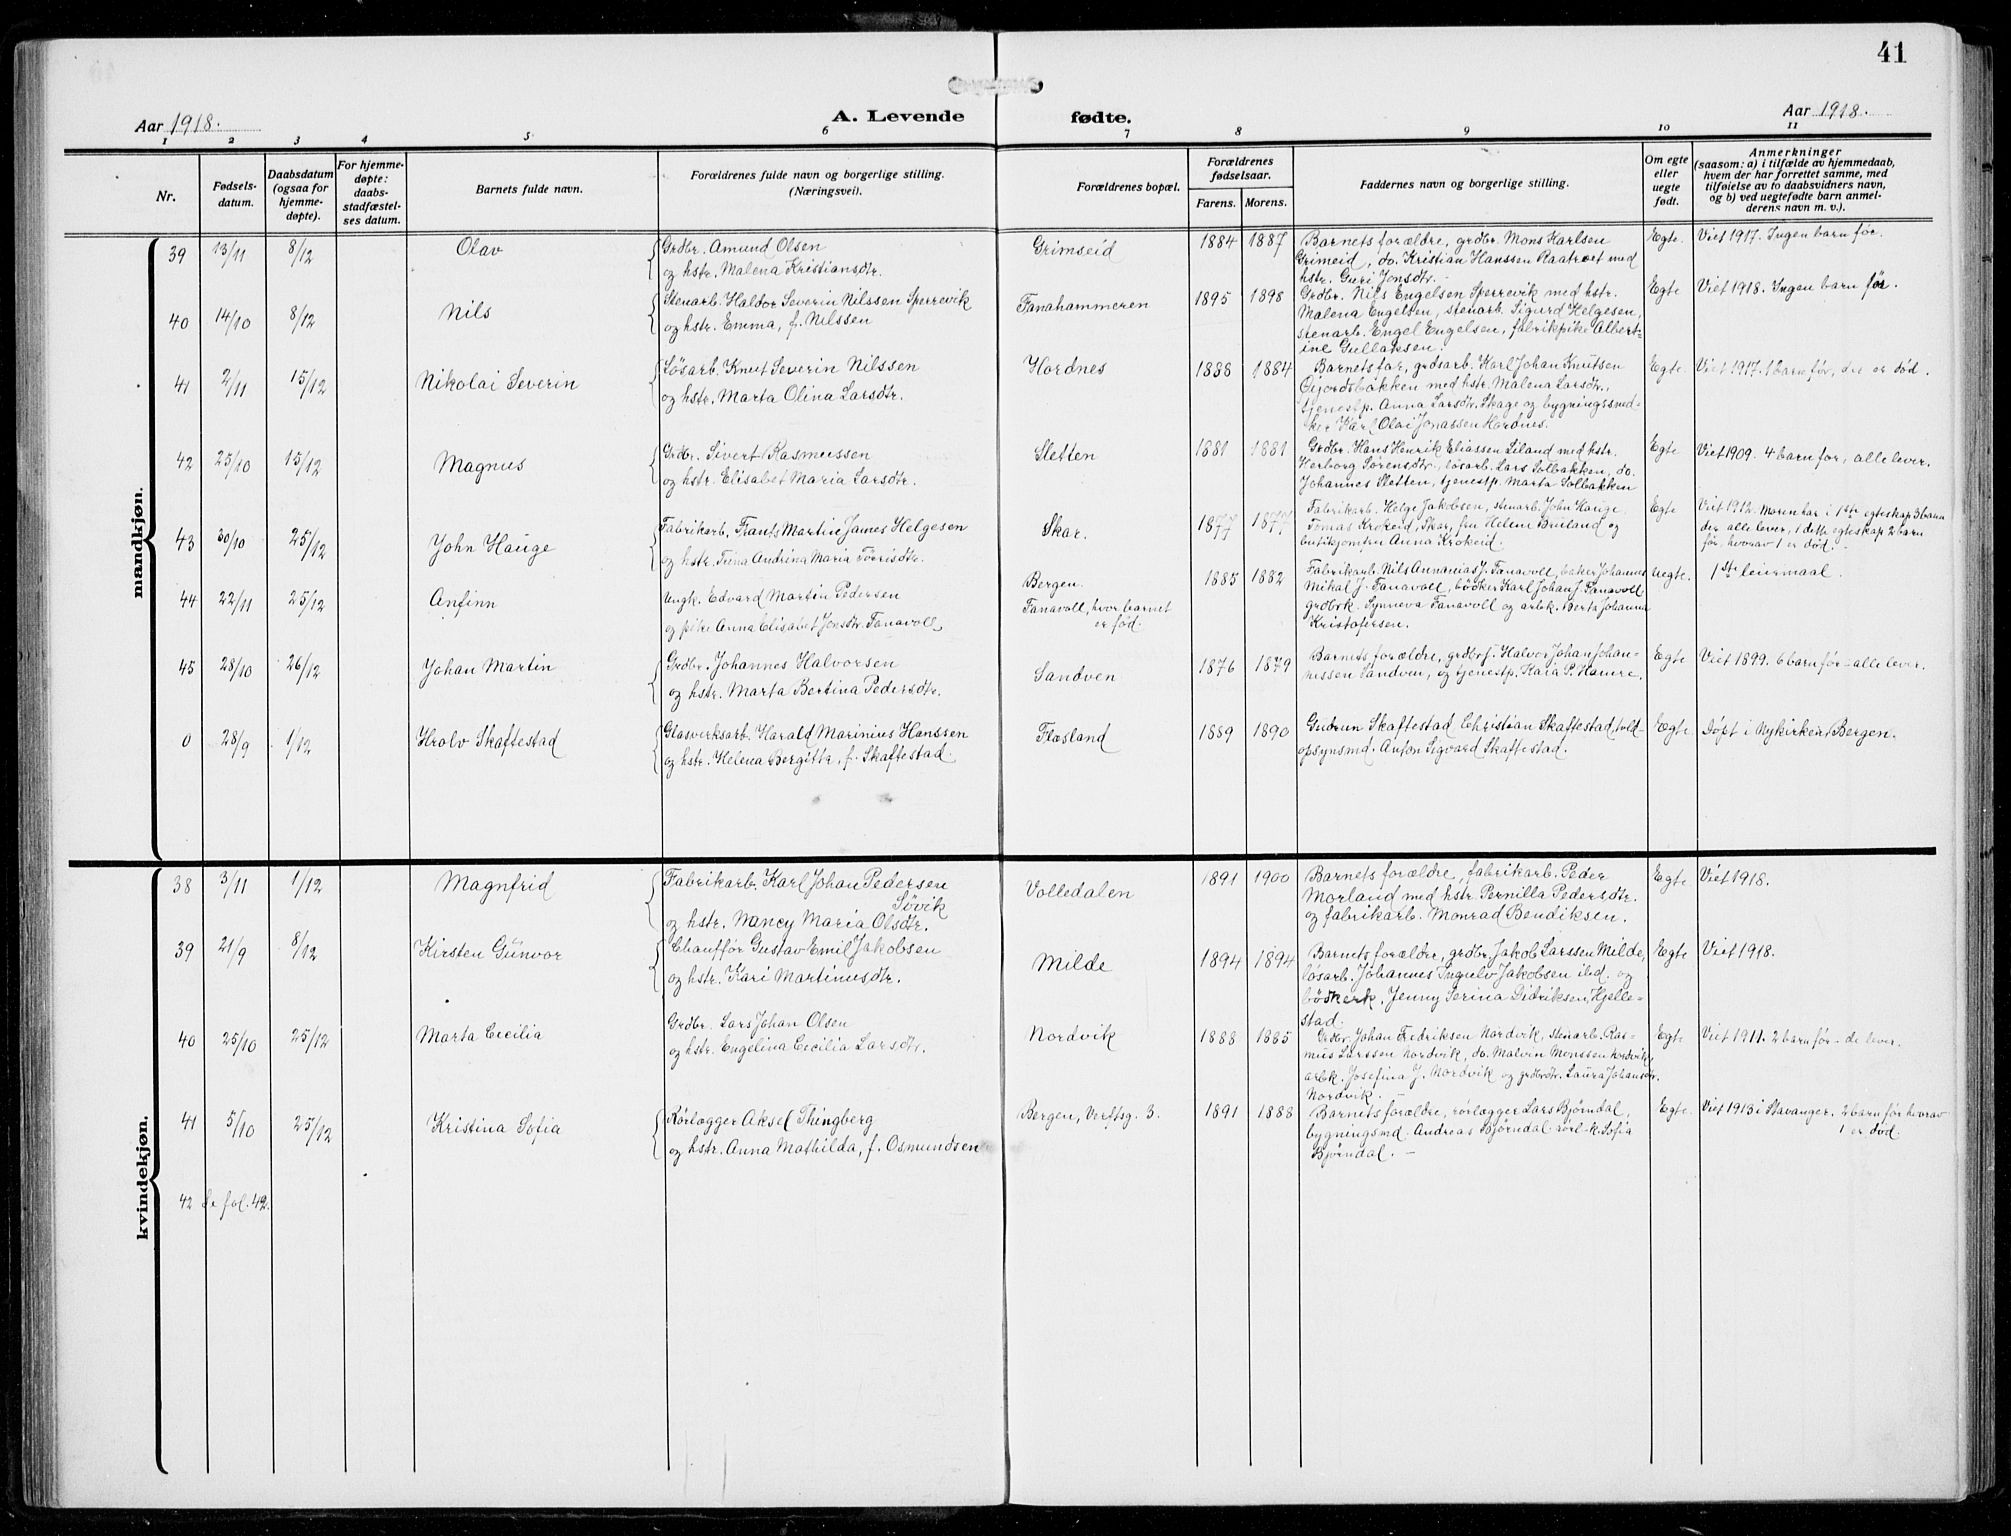 41
Aar 1918.
A. Levende fødte.
Aar 1918.
1 2 3 4 5 6 7 8 9 10 11
Nr.
Fødsels-
datum.
Daabsdatum
(ogsaa for
hjemme-
døpte).
For hjemme-
døpte:
daabs-
stadfæstel-
ses datum.
Barnets fulde navn.
Forældrenes fulde navn og borgerlige stilling.
(Næringsvei).
Forældrenes bopæl.
Forældrenes
fødselsaar.
Farens. Morens.
Faddernes navn og borgerlige stilling.
Om egte
eller
uegte
født.
Anmerkninger
(saasom: a) i tilfælde av hjemmedaab,
hvem der har forrettet samme, med
tilføielse av to daabsvidners navn,
og b) ved uegtefødte barn anmel-
derens navn m. v.).
mandkjøn.
39 13/11 8/12 Olav
Grdbr. Amund Olsen
og hstr. Malena Kristiansdtr.
Grimseid 1884 1887
Barnets forældre, grdbr. Mons Karlsen
Grimeid, do. Kristian Hanssen Raatræet med
hstr. Guri Jonsdtr. -
Egte. Viet 1917. Ingen barn før.
40 14/10 8/12 Nils
Stenarb. Haldor Severin Nilssen Sperrevik
og hstr. Emma, f. Nilssen
Fanahammeren 1895 1898
Grdbr. Nils Engelsen Sperrevik med hstr.
Malena Engelsen, stenarb. Sigurd Helgesen,
stenarb. Engel Engelsen, fabrikpike Albert-
ine Gullaksen.
Egte Viet 1918. Ingen barn før.
41 2/11 15/12 Nikolai Severin
Løsarb. Knut Severin Nilssen
og hstr. Marta Olina Larsdtr.
Hordnes 1888 1884
Barnets far, grdsarb. Karl Johan Knutsen
Gjordsbakken med hstr. Malena Larsdtr.,
tjenestp. Anna Larsdtr. Skage og bygningssned-
ker Karl Olai Jonassen Hordnes.
Egte Viet 1917. 1 barn før, det er død.
42 25/10 15/12 Magnus
Grdbr. Sivert Rasmussen
og hstr. Elisabet Maria Larsdtr.
Sletten 1881 1881
Grdbr. Hans Henrik Eliassen Liland med hstr.
Herborg Sørensdtr., løsarb. Lars Solbakken, do.
Johannes Sletten, tjenestp. Marta Solbakken
Egte Viet 1909. 4 barn før, alle lever.
43 30/10 25/12 John Hauge
Fabrikarb. Frants Martin James Helgesen
og hstr. Trina Andrina Maria Törrisdtr.
Skar. 1877 1877
Fabrikarb. Helge Jakobsen, stenarb. John Hauge,
Tomas Krokeid, Skar, fru Helene Bruland og
butikjomfru Anna Krokeid.
Egte Viet 1912. Moren har i 1ste egteskap 3 barn
der alle lever, i dette egteskap 2 barn
før, hvorav 1 er død. -
44 22/11 25/12 Anfinn
Ungk. Edvard Martin Pedersen
og pike Anna Elisabet Jonsdtr. Fanavoll,
Bergen.
Fanavoll, hvor barnet
er fød.
1885 1882
Fabrikarb. Nils Annanias J. Fanavoll, baker Johannes
Mikal J. Fanavoll, bödker Karl Johan J. Fanavoll
grdbrk. Synneva Fanavoll og arbk. Berta Johanna
Kristofersen.
Uegte. 1ste leiermaal.
45 28/10 26/12 Johan Martin
Grdbr. Johannes Halvorsen
og hstr. Marta Bertina Pedersdtr.
Sandven 1876 1879
Barnets forældre, grdbrf. Halvor Johan Johan-
nessen Sandven, og tjenestp. Kaia P. Hamre.
Egte Viet 1899. 6 barn før - alle lever.
0 28/9 1/12 Hrolv Skaftestad
Glasverksarb. Harald Marinius Hanssen
og hstr. Helena Bergitte, f. Skaftestad
Flesland 1889 1890
Gudrun Skaftestad, Christian Skaftestad, told-
opsynsmd. Anfon Sigvard Skaftestad.
Egte. Døpt i Nykirken, Bergen.
kvindekjøn.
38 3/11 1/12 Magnfrid
Fabrikarb. Karl Johan Pedersen
Søvik
og hstr. Nancy Maria Olsdtr.
Volledalen 1891 1900
Barnets forældre, fabrikarb. Peder
Morland med hstr. Pernilla Pedersdtr.
og fabrikarb. Monrad Bendiksen.
Egte Viet 1918.
39 21/9 8/12 Kirsten Gunvor
Chauffør Gustav Emil Jakobsen
og hstr. Kari Martinusdtr.
Milde 1894 1894
Barnets forældre, grdbr. Jakob Larssen Milde,
løsarb. Johannes Ingulv Jakobsen ibd. og
bödkerk. Jenny Serina Didriksen, Hjelle-
stad.
Egte Viet 1918.
40 25/10 25/12 Marta Cecilia
Grdbr. Lars Johan Olsen
og hstr. Engelina Cecilia Larsdtr.
Nordvik 1888 1885
Grdbr. Johan Fredriksen Nordvik, stenarb. Ras-
mus Larssen Nordvik, do. Malvin Monssen Nordvik,
arbk. Josefina J. Nordvik og grdbrdtr. Laura Johansdtr.
Nordvik. -
Egte Viet 1911. 2 barn før - de lever.
41 5/10 25/12 Kristina Sofia
Rørlægger Aksel Thingberg
og hstr. Anna Mathilda, f. Osmundsen
Bergen, Verftsg. 3. 1891 1888
Barnets forældre, rørlægger Lars Bjørndal,
bygningsmd. Andreas Bjørndal rørl-k. Sofia
Bjørndal. -
Egte. Viet 1913 i Stavanger. 2 barn før hvorav
1 er død.
42 Se fol. 42.